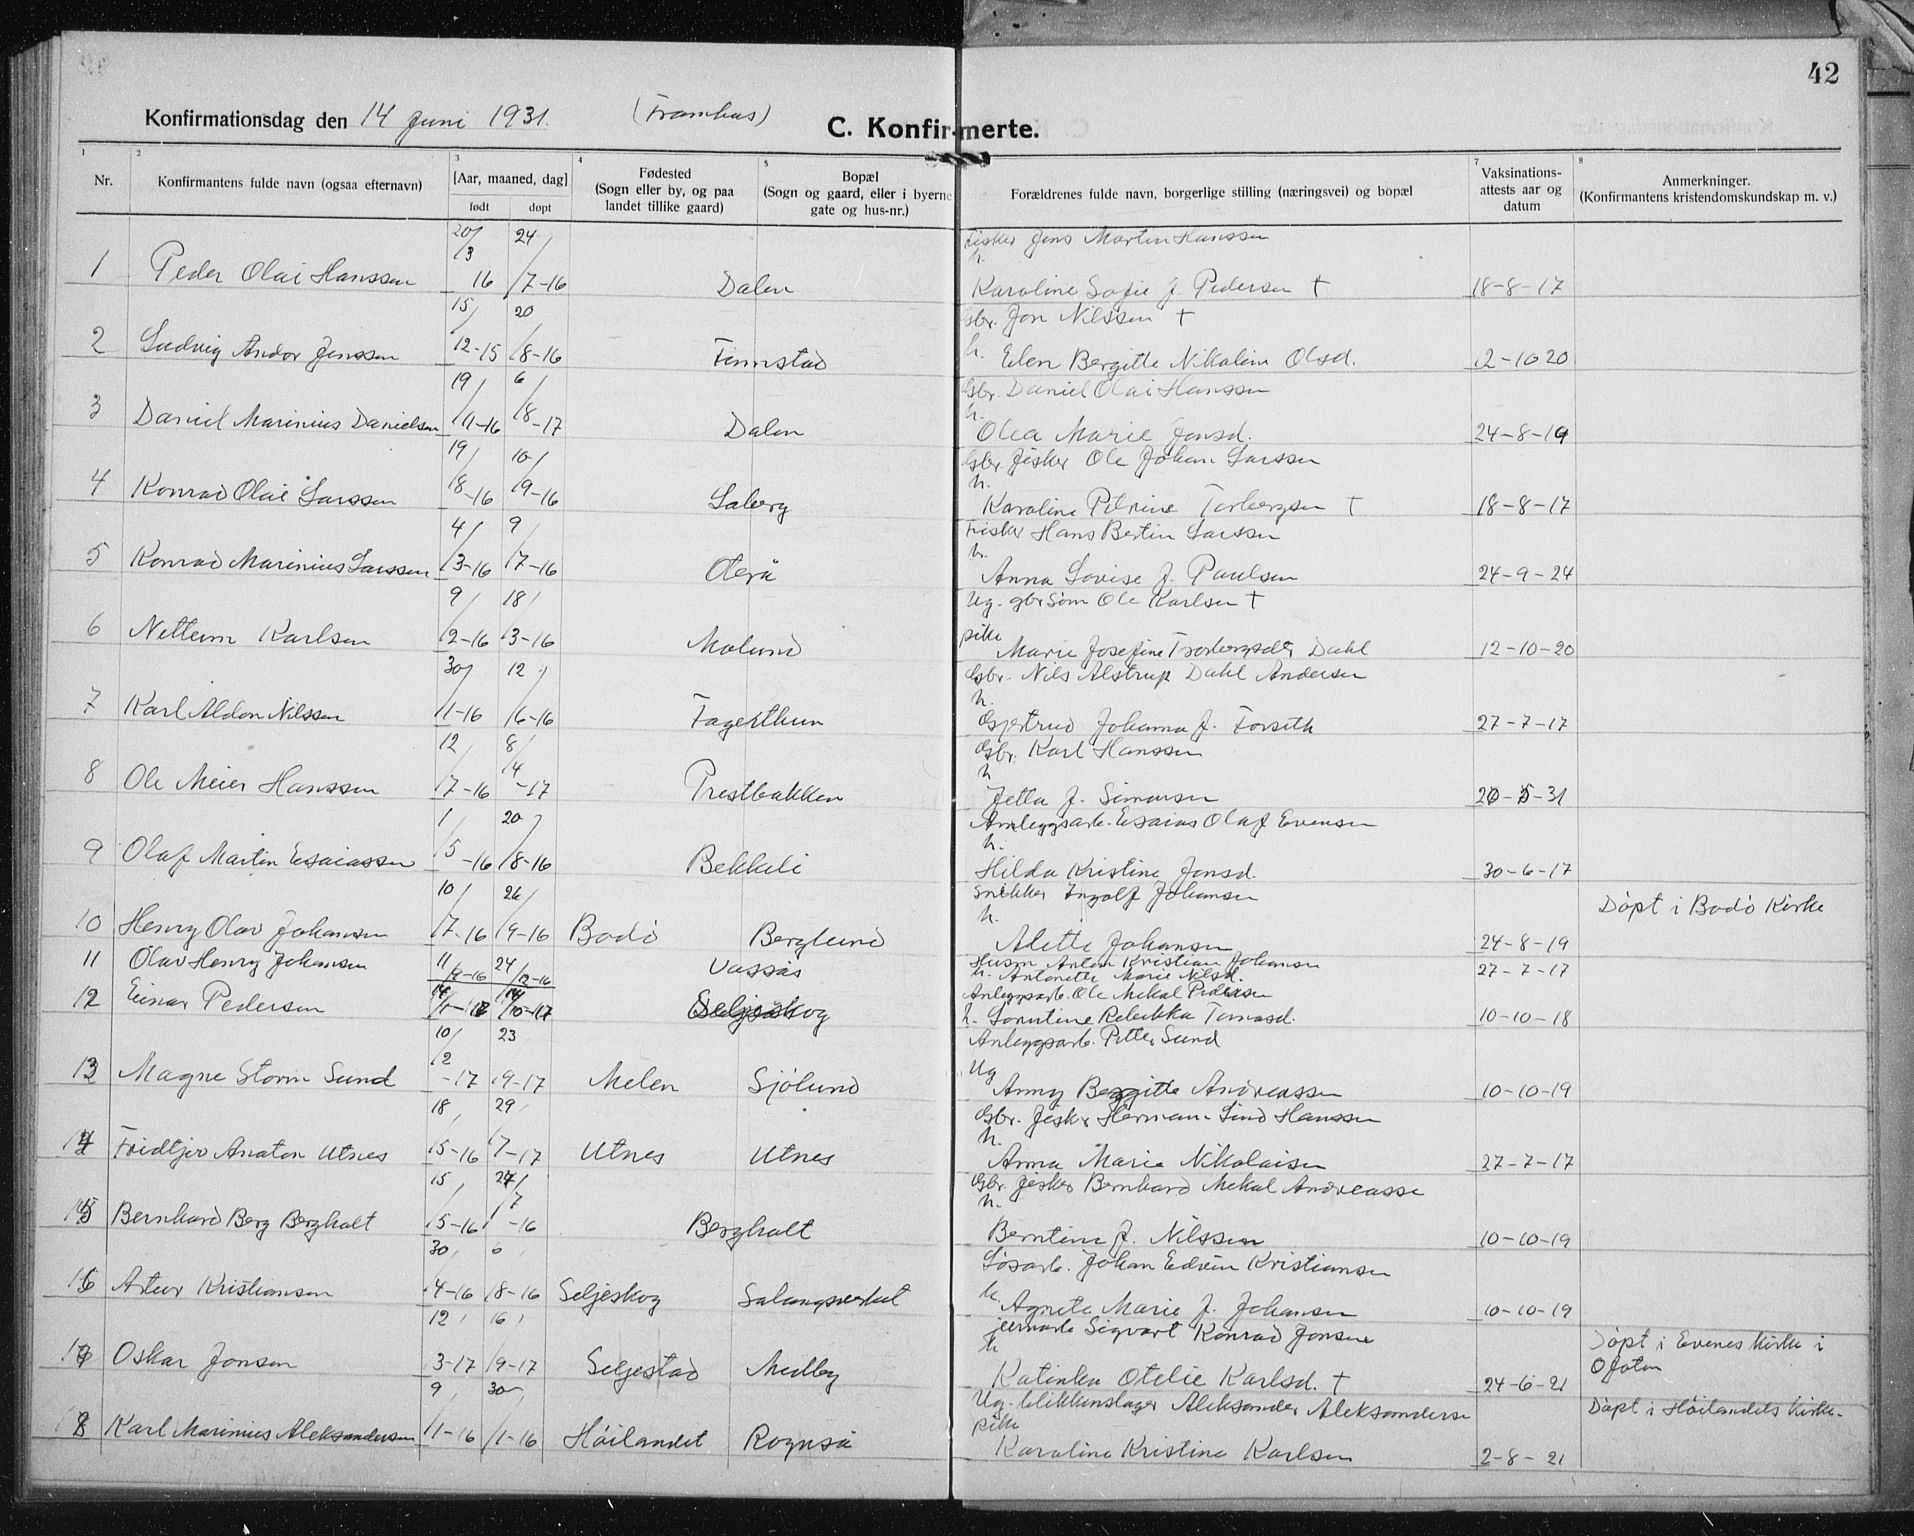 42
Konfirmationsdag den 14 Juni 1931. (Framhus)
C. Konfirmerte.
1 2 3 4 5 7 8
Nr. Konfirmantens fulde navn (ogsaa efternavn) [Aar, maaned, dag] født døpt Fødested (Sogn eller by, og paa landet tillike gaard) Bopæl (Sogn og gaard, eller i byerne gate og hus-nr.) Forældrenes fulde navn, borgerlige stilling (næringsvei) og bopæl Vaksinations-attests aar og datum Anmerkninger. (Konfirmantens kristendomskundskap m. v.)
20/3 24/ Fisker Jens Martin Hanssen
1 Peder Olai Hanssen 16 /7-16 Dalen h. Karoline Sofie f. Pedersen † 18-8-17
15/ 20 Gbr. Jon Nilssen †
2 Ludvig Andor Jenssen 12-15 /8-16 Finnstad h. Elen Bergitte Nikoline Olsd. 12-10 20
19/ 6/ Gbr. Daniel Olai Hanssen
3 Daniel Marinius Danielsen /11-16 /8-17 Dalen h. Olea Marie Jonsd. 24-8-19
19/ 10/ Gbr. fisker Ole Johan Larssen
4 Konrad Olai Larssen /8-16 /9-16 Laberg h. Karoline Petrine Torbergsen † 18-8-17
4/ 9/ Fisker Hans Bertin Larssen
5 Konrad Marinius Larssen /3-16 /7-16 Oterå h. Anna Lovise f. Paulsen 24-9-24
9/ 18/ Ug. gbrsøn Ole Karlsen †
6 Karlsen /2-16 /3-16 Molund pike Marie Josefine Dahl 12-10-20
30/ 12/ Gbr. Nils Alstrup Dahl Andersen
7 Karl Aldon Nilssen /1-16 /6-16 h. Gjertrud Johanna f. Forseth 27-7-17
12/ 8/ Gbr. Karl Hanssen
8 Ole Meier Hanssen /7-16 /4-17 Prestbakken h. Jetta f. Simonsen 20-5-31
1/ 20/ Anleggsarb. Esaias Olaf Evensen
9 Olaf Martin Esaiassen /5-16 /8-16 Bekkeli h. Hilda Kristine Jonsd. 30-6-17
10/ 26/ Snekker Ingolf Johansen Døpt i Bodø Kirke
10 Henry Olav Johansen /7-16 /9-16 Bodø Berglund h. Alette Johansen 24-8-19
11 Olav Henry Johansen 11/ 24/12-16 Vassås Husm Anton Kristian Johansen h. Antonette Marie Nilsd. 27-7-17
12 Einar Pedersen /10-17 Seljeskog Anleggsarb. Ole Mekal Pedersen h. Lorentine Rebekka Tomasd. 10-10-18
10/2 23 Anleggsarb. Petter Sund
13 Magne Storm Sund -17 /9-17 Melen Sjølund Ug Anny Bergitte Andreassen 10-10-19
18/ 29/ Gbr. fisker Herman Lind Hanssen
14 Fridtjov Anaton Utnes /5-16 /7-17 Utnes Utnes h. Anna Marie Nikolaisen 27-7-17
15/ 27/7 Gbr. fisker Bernhard Mekal Andreasse
15 Bernhard Berg Bergholt /5-16 -16 Bergholt h. Berntine f. Nilssen 10-10-19
30/ 6 Løsarb. Johan Edvin Kristiansen
16 Artur Kristiansen /4-16 /8-16 Seljeskog Salangsverket h. Agnete Marie f. Johansen 10-10-19
12/ 16/ Sigvart Konrad Jonsen Døpt i Evenes Kirke i Ofoten
17 Oskar Jonsen 3-17 /9-17 Seljestad Medby h Katinka Otelie Karlsd. † 24-6-21
9/ 30/ Ug. blikkenslager Aleksander Aleksanderse Døpt i Høilandets Kirke.
18 Karl Marinius Aleksandersen /1-16 /1-16 Høilandet Rognså pike Karoline Kristine Karlsen 2-8-21